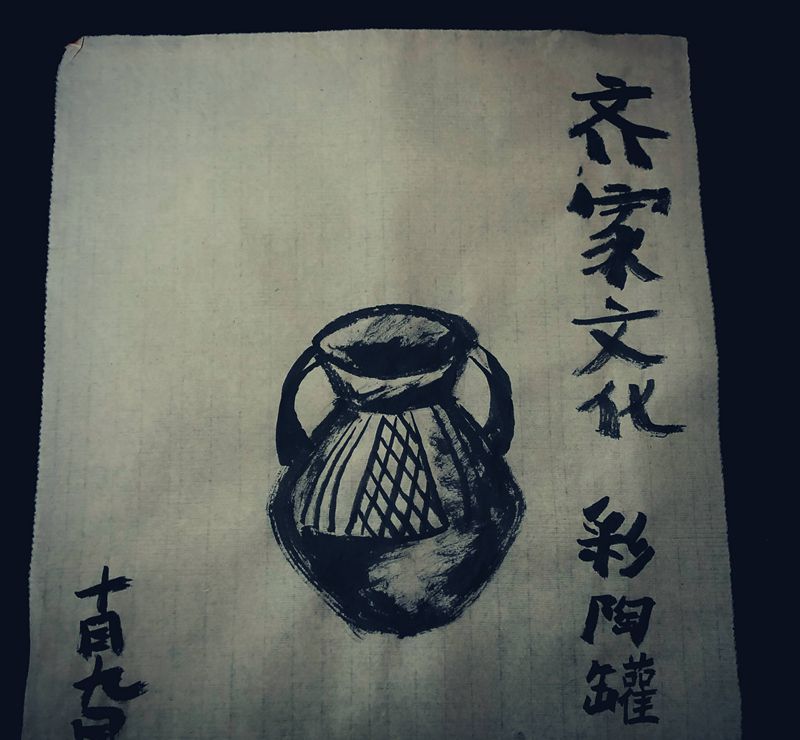 齐家文化 彩陶罐
十月九日